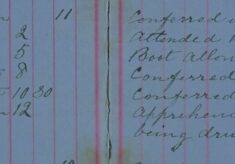 11 Conferred
2 Attended
5 Boot Allow
8 Conferred
10 30 Conferred
12 Apprehen
being dru